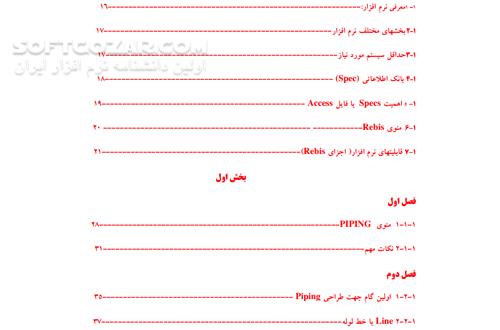 ۱-۱معرفی نرم افزار:-----------------------------------------------------------۱۶
SOFTGOZAR.COM
۲-۱بخشهای مختلف نرم افزار-----------------------------------------------------------۱۷
۳-۱حداقل سیستم مورد نیاز-----------------------------------------------------------۱۷
اولین دانشنامه نرم افزار ایران
۴-۱ بانک اطلاعاتی (Spec) -----------------------------------------------------------۱۸
۵-۱ اهمیت Specs یا فایل Access -----------------------------------------------------------۱۹
۶-۱ منوی Rebis------------ -----------------------------------------------۲۰
۷-۱ قابلیتهای نرم افزار( اجزای Rebis)-----------------------------------------------------------۲۱
بخش اول
فصل اول
۱-۱-۱ منوی PIPING-----------------------------------------------------------۲۸
۲-۱-۱ نکات مهم-----------------------------------------------------------۳۱
فصل دوم
۱-۲-۱ اولین گام جهت طراحی Piping -----------------------------------------------------------۳۵
۲-۲-۱ Line یا خط لوله-----------------------------------------------------------۳۷